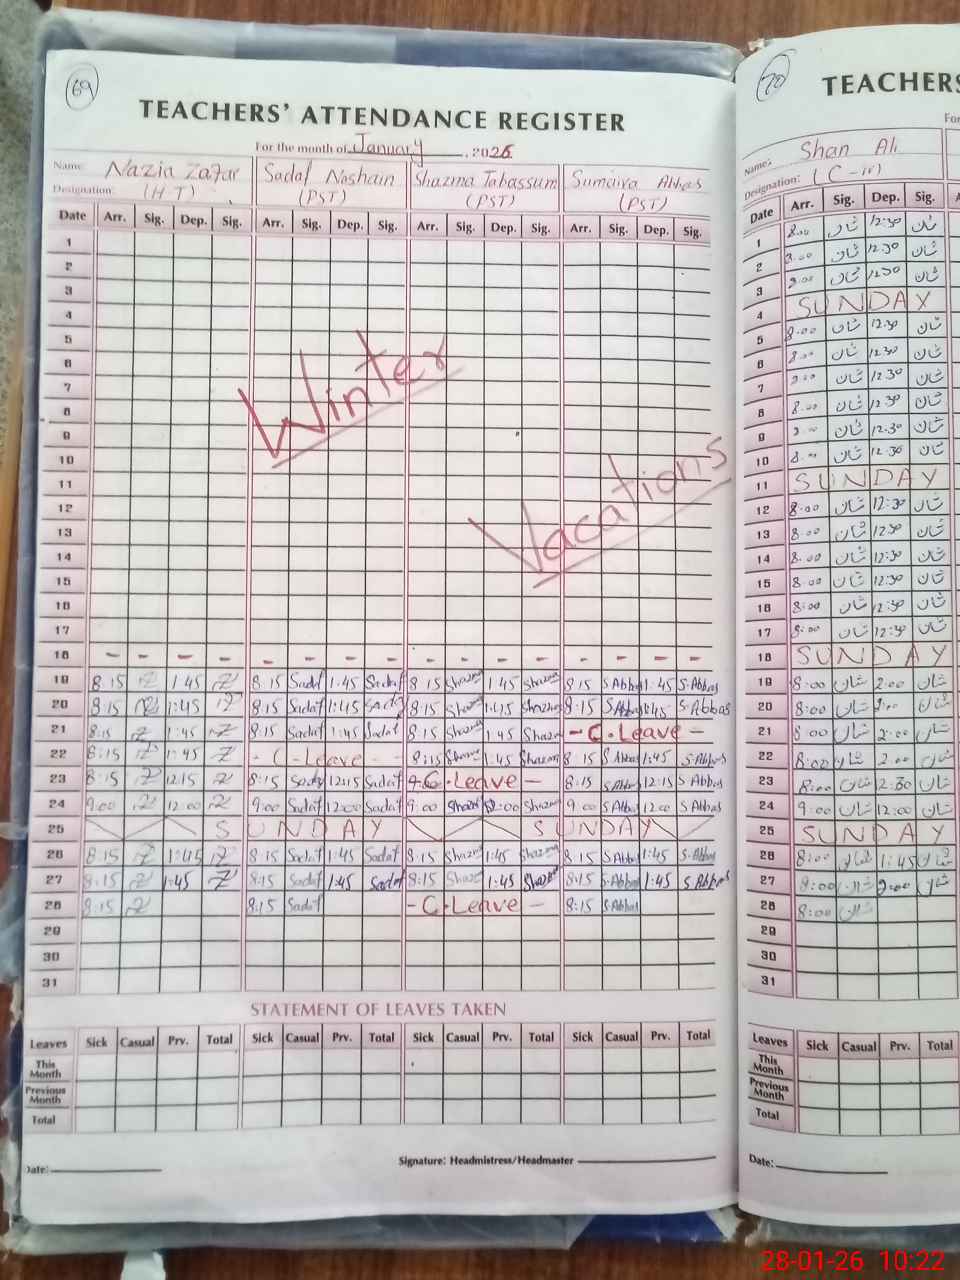 69
TEACHERS' ATTENDANCE REGISTER
For the month of January, 2026
Name: Nazia Zafar Sadaf Noshain Shazma Tabassum Sumaira Abbas
Designation: (HT) (PST) (PST) (PST)
Date Arr. Sig. Dep. Sig. Arr. Sig. Dep. Sig. Arr. Sig. Dep. Sig. Arr. Sig. Dep. Sig.
1
2
3
4
5
6
7
8
9
10
11
12
13
14
15
16
17
Winter
Vacations
18 - - - - - - - - - - - - - - - -
19 8:15 Z 1:45 Z 8:15 Sadaf 1:45 Sadaf 8:15 Shazma 1:45 Shazma 8:15 S.Abbas 1:45 S.Abbas
20 8:15 Z 1:45 Z 8:15 Sadaf 1:45 Sadaf 8:15 Shazma 1:45 Shazma 8:15 S.Abbas 1:45 S.Abbas
21 8:15 Z 1:45 Z 8:15 Sadaf 1:45 Sadaf 8:15 Shazma 1:45 Shazma - C.Leave -
22 8:15 Z 1:45 Z - C-Leave - 8:15 Shazma 1:45 Shazma 8:15 S.Abbas 1:45 S.Abbas
23 8:15 Z 12:15 Z 8:15 Sadaf 12:15 Sadaf - C.Leave - 8:15 S.Abbas 12:15 S.Abbas
24 9:00 Z 12:00 Z 9:00 Sadaf 12:00 Sadaf 9:00 Shazma 12:00 Shazma 9:00 S.Abbas 12:00 S.Abbas
25 SUNDAY SUNDAY
26 8:15 Z 1:45 Z 8:15 Sadaf 1:45 Sadaf 8:15 Shazma 1:45 Shazma 8:15 S.Abbas 1:45 S.Abbas
27 8:15 Z 1:45 Z 8:15 Sadaf 1:45 Sadaf 8:15 Shazma 1:45 Shazma 8:15 S.Abbas 1:45 S.Abbas
28 8:15 Z 8:15 Sadaf - C.Leave - 8:15 S.Abbas
29
30
31
STATEMENT OF LEAVES TAKEN
Leaves Sick Casual Prv. Total Sick Casual Prv. Total Sick Casual Prv. Total Sick Casual Prv. Total
This Month
Previous Month
Total
Date:
Signature: Headmistress/Headmaster
70
TEACHERS
For
Name: Shan Ali
Designation: (C-iv)
Date Arr. Sig. Dep. Sig.
1 8:00 شان 12:30 شان
2 8:00 شان 12:30 شان
3 8:00 شان 12:30 شان
4 SUNDAY
5 8:00 شان 12:30 شان
6 8:00 شان 12:30 شان
7 8:00 شان 12:30 شان
8 8:00 شان 12:30 شان
9 8:00 شان 12:30 شان
10 8:00 شان 12:30 شان
11 SUNDAY
12 8:00 شان 12:30 شان
13 8:00 شان 12:30 شان
14 8:00 شان 12:30 شان
15 8:00 شان 12:30 شان
16 8:00 شان 12:30 شان
17 8:00 شان 12:30 شان
18 SUNDAY
19 8:00 شان 2:00 شان
20 8:00 شان 2:00 شان
21 8:00 شان 2:00 شان
22 8:00 شان 2:00 شان
23 8:00 شان 12:30 شان
24 9:00 شان 12:00 شان
25 SUNDAY
26 8:00 شان 1:45 شان
27 8:00 شان 2:00 شان
28 8:00 شان
29
30
31
Leaves Sick Casual Prv. Total
This Month
Previous Month
Total
Date:
28-01-26 10:22